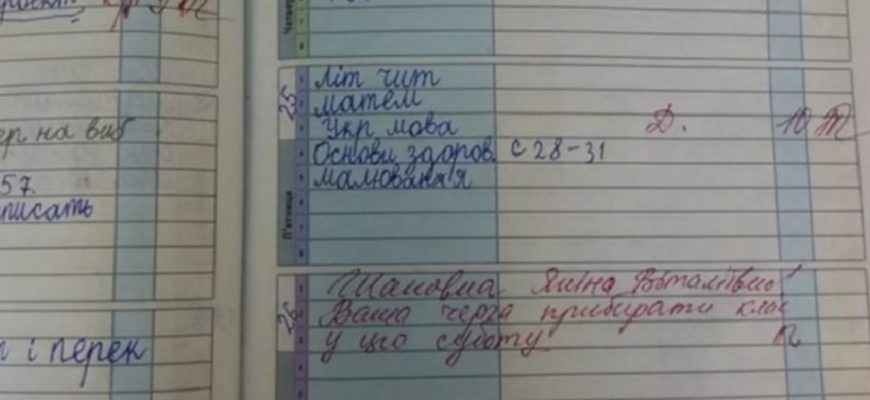 Четвер
7
8
ер на виб
57.
писать
і перек
25
П'ятниця
1 Літ чит
2 матем
3 Укр мова Д. 10
4 Основи здоров. с 28-31
5 малювання
6
7
8
26
1 Шановна Яніна Віталіївно!
2 Ваша черга прибирати клас
3 у цю суботу
4
5